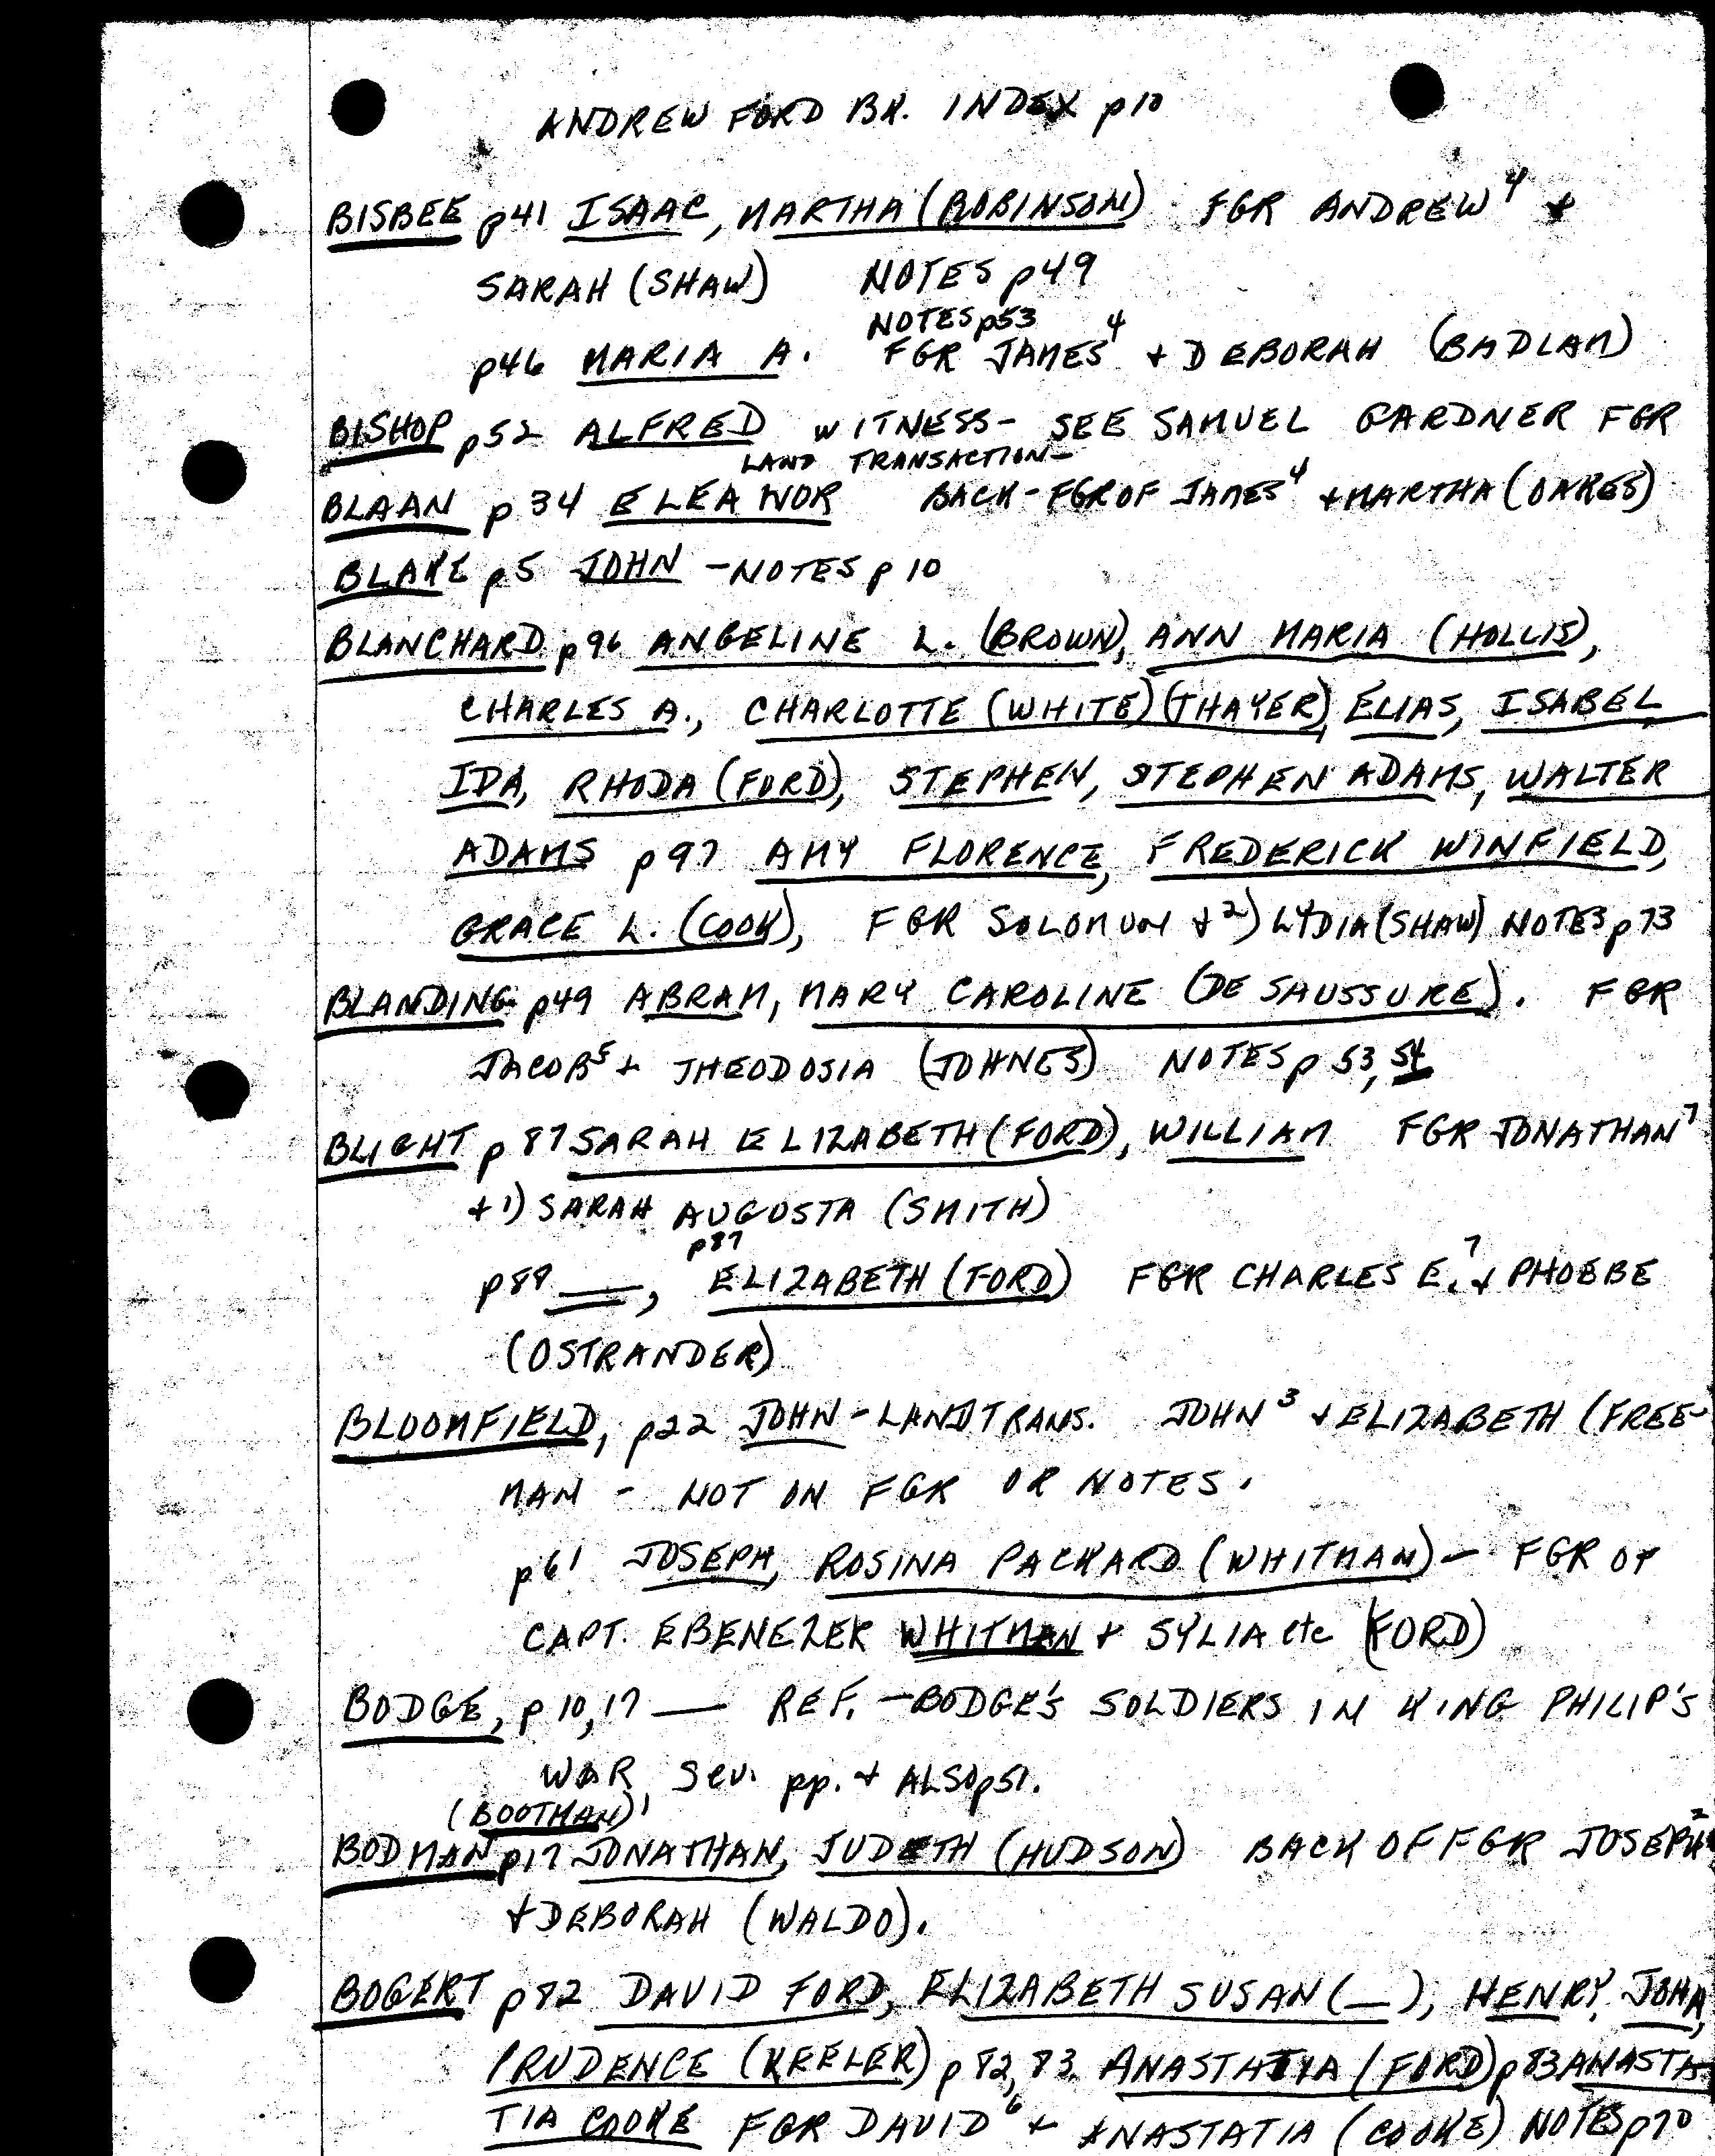 ANDREW FORD BK. INDEX p10
BISBEE p41 ISAAC, MARTHA (ROBINSON) FGR ANDREW⁴ +
SARAH (SHAW) NOTES p49
NOTES p53
p46 MARIA A. FGR JAMES⁴ + DEBORAH (BADLAM)
BISHOP p52 ALFRED WITNESS - SEE SAMUEL GARDNER FGR
LAND TRANSACTION -
BLAAN p34 ELEANOR BACK - FGR OF JAMES⁴ + MARTHA (OAKES)
BLAKE p5 JOHN - NOTES p 10
BLANCHARD p96 ANGELINE L. (BROWN), ANN MARIA (HOLLIS),
CHARLES A., CHARLOTTE (WHITE) (THAYER), ELIAS, ISABEL
IDA, RHODA (FORD), STEPHEN, STEPHEN ADAMS, WALTER
ADAMS p97 AMY FLORENCE, FREDERICK WINFIELD,
GRACE L. (COOK), FGR SOLOMON + 2) LYDIA (SHAW) NOTES p73
BLANDING p49 ABRAM, MARY CAROLINE (DE SAUSSURE). FGR
JACOB⁵ + THEODOSIA (JOHNES) NOTES p 53, 54
BLIGHT p 87 SARAH ELIZABETH (FORD), WILLIAM FGR JONATHAN⁷
+ 1) SARAH AUGUSTA (SMITH)
p87
p89 ___, ELIZABETH (FORD) FGR CHARLES E.⁷ + PHOEBE
(OSTRANDER)
BLOOMFIELD, p22 JOHN - LAND TRANS. JOHN³ + ELIZABETH (FREE-
MAN - NOT ON FGR OR NOTES.
p61 JOSEPH, ROSINA PACKARD (WHITMAN) - FGR OF
CAPT. EBENEZER WHITMAN + SYLIA etc (FORD)
BODGE, p 10, 17 ___ REF. - BODGE'S SOLDIERS IN KING PHILIP'S
WAR, Sev. pp. + ALSO p51.
(BOOTMAN)
BODMAN p17 JONATHAN, JUDETH (HUDSON) BACK OF FGR JOSEPH²
+ DEBORAH (WALDO).
BOGERT p82 DAVID FORD, ELIZABETH SUSAN (_), HENRY, JOHN,
PRUDENCE (KEELER) p 82, 83. ANASTATIA (FORD) p83 ANASTA-
TIA COOKE FGR DAVID⁶ + ANASTATIA (COOKE) NOTES p70